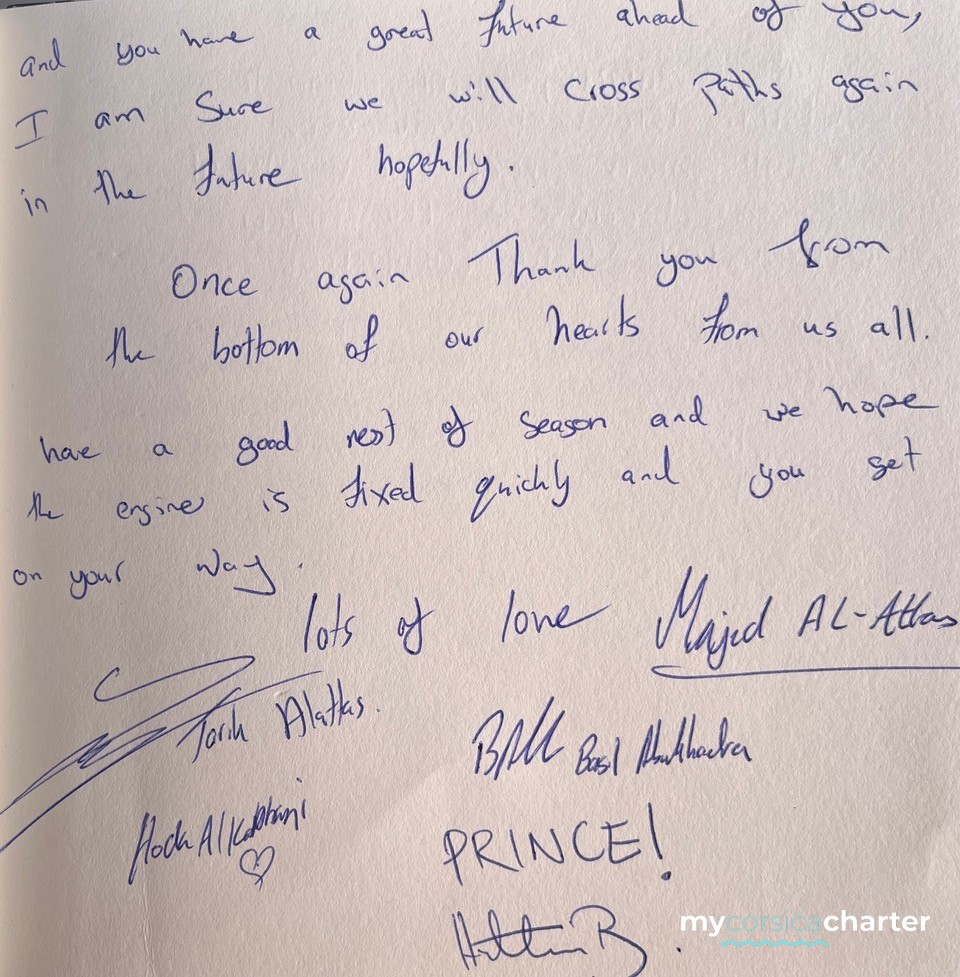 and you have a great future ahead of you,
I am Sure we will cross paths again
in the future hopefully.
Once again Thank you from
the bottom of our hearts from us all.
have a good rest of season and we hope
the engine is fixed quickly and you get
on your way.
lots of love Majed AL-Attas
Tarik Alattas.
Basil
PRINCE!
mycorsicacharter